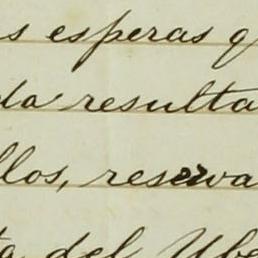 s esperas q
da resulta
llos, reserva
ta del Ube